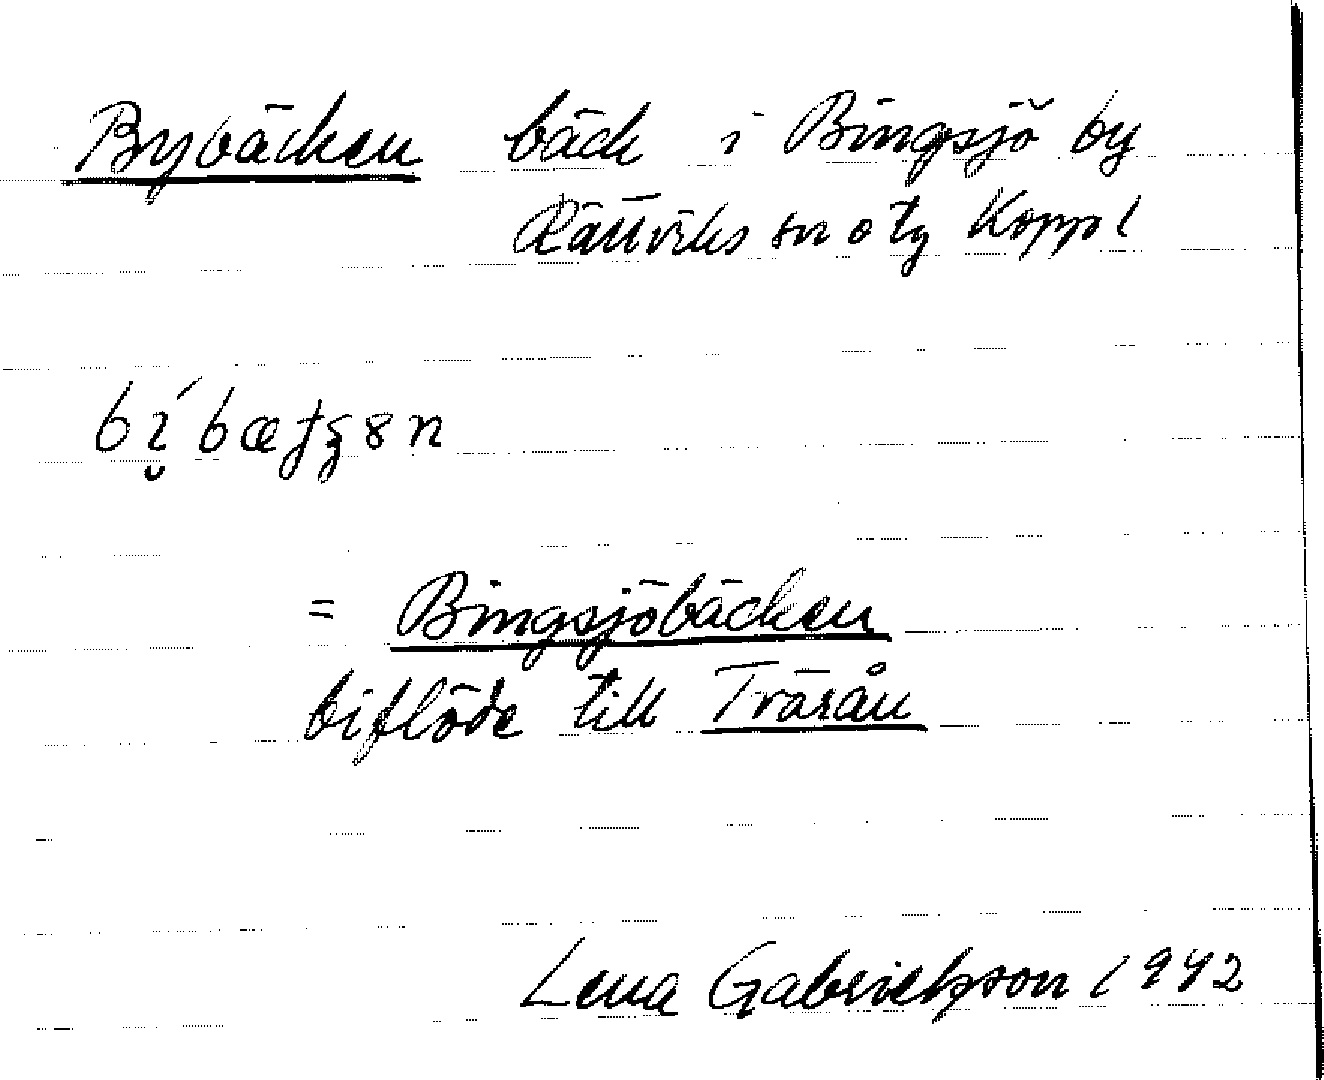 Bybäcken bäck i Bingsjö by
Rättviks sn o tg Koppl
= Bingsjöbäcken
biflöde till Träsån
Lena Gabrielsson 1942